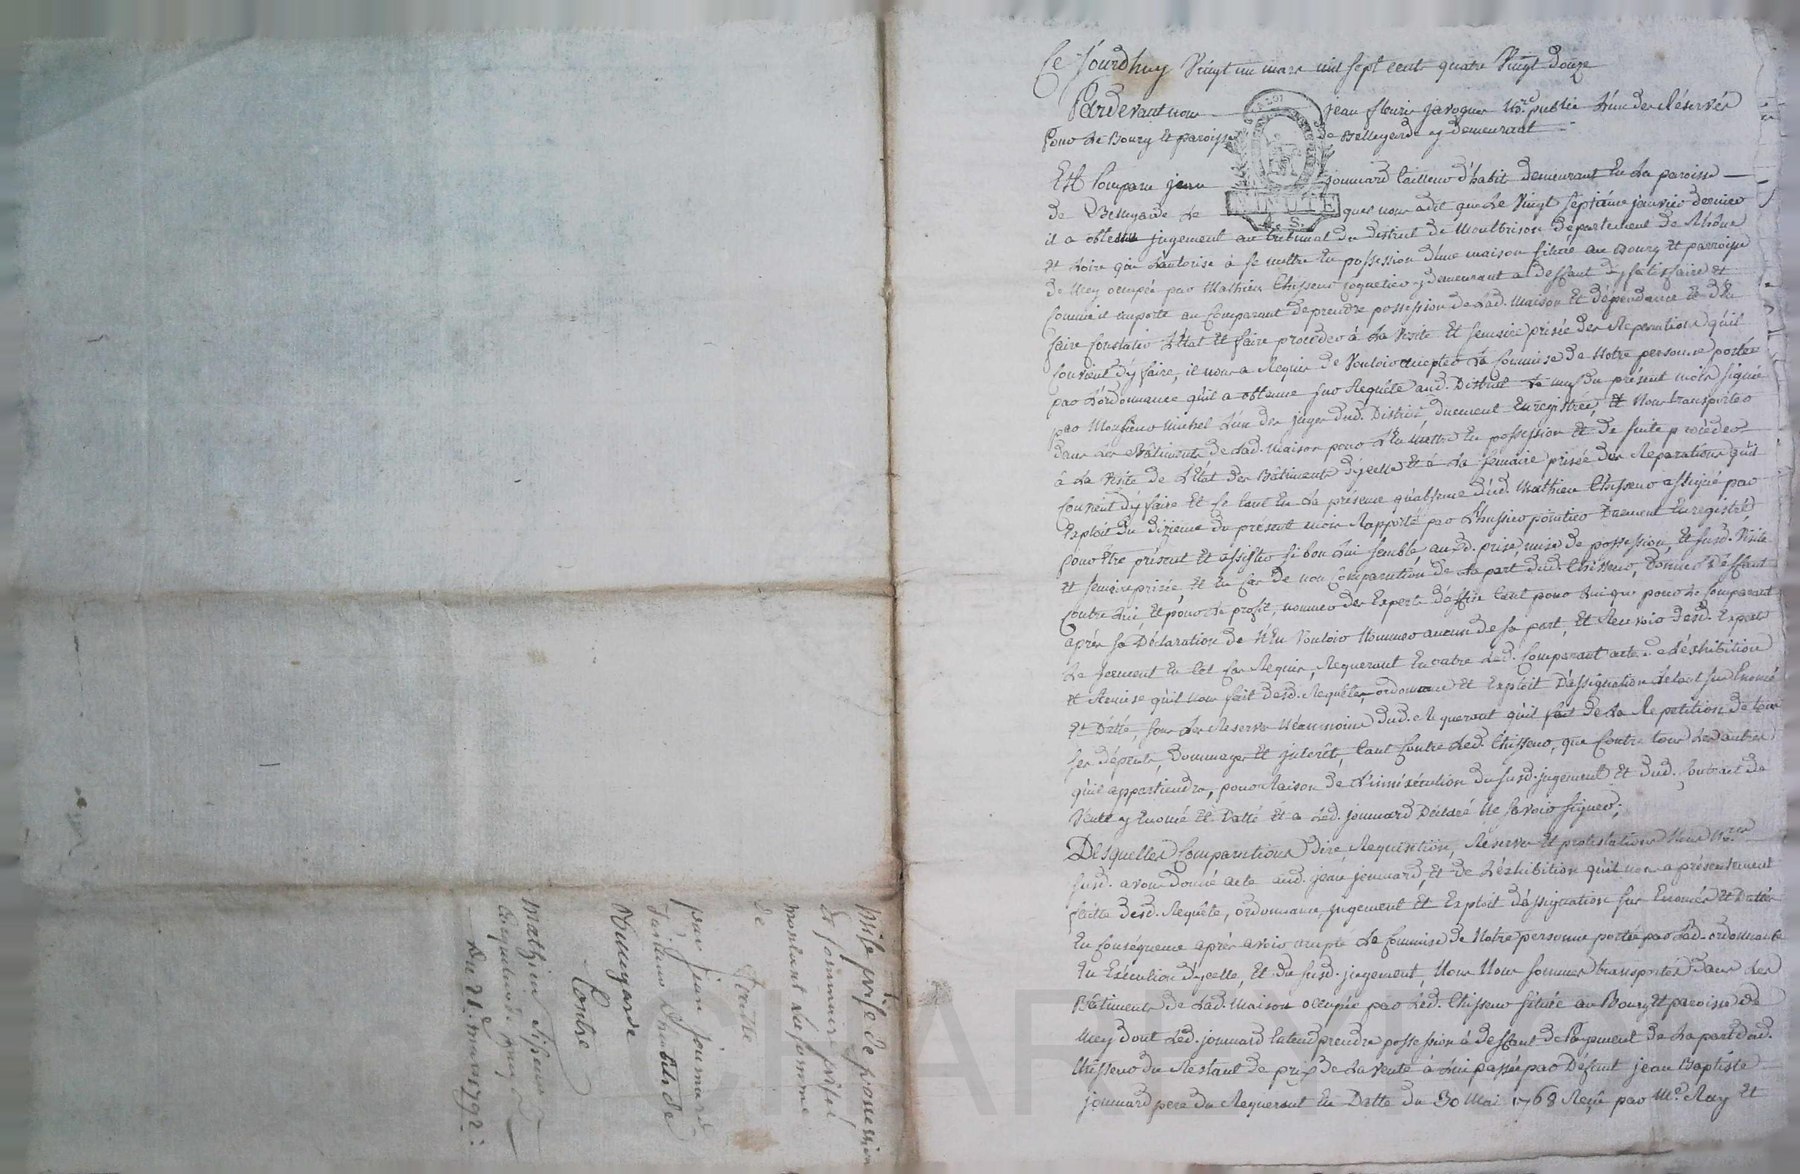 Mise prise de possession
et sommaire prisée
montant la somme
de
par jean joumard
tailleur d'habits de
Contre
mathieu
du 21. mars 1792:
Ce jourdhuy Vingt un mars mil sept cent quatre Vingt douze
Pardevant nous jean fleurie javogues no.re public L'un des Réservés
pour le Bourg et paroisse de Bellegarde y demeurant
MINUTE
4. S.
Est Comparu jean joumard tailleur d'habit demeurant en La paroisse
de Bellegarde Le quel nous a dit que Le Vingt septième janvier dernier
il a obtenu jugement au tribunal du district de Montbrison département de Rhône
et Loire qui L'autorise à se mettre en possession d'une maison située au Bourg et parroisse
de Mey ocupée par Mathieu Chisseur coquetier y demeurant a deffaut d'y satisfaire et
Comme il importe au Comparant de prendre possession de Lad. maison et dépendance et d'en
faire Constater L'état et faire procéder à La Visite et semaire prisée des Reparations qu'il
Convient d'y faire, il nous a Requis de Vouloir accepter La Commise de Notre personne portée
par L'ordonnance qu'il a obtenue sur Requête aud. District Le du présent mois signée
par Monsieur michel L'un des juges dud. District duement Enregistrée, et Nous transporter
dans Les Bâtiments de Lad. maison pour L'en mettre en possession et de suite procéder
à La Visite de L'état des Bâtiments d'ycelle et à La semaire prisée des Reparations qu'il
Convient d'y faire et Ce tant En La présence qu'absence dud. Mathieu Chisseur assigné par
Exploit du dixieme du présent mois Rapporté par L'huissier pointier Duement Enregistré
pour être présent et assister si bon Lui semble auxd. prise, mise de possession, et susd. Visite
et semaire prisée, et En Cas de non Comparution de La part dud. Chisseur, Donner Deffaut
Contre Lui et pour Le profit, nommer des Experts d'office tant pour Lui que pour Le Comparant
après sa Déclaration de N'En Vouloir Nommer aucun de sa part, et Recevoir desd. Experts
Le serment En tel Cas Requis, Requerant En outre Led. Comparant acte de L'éxhibition
et Remise qu'il nous fait desd. Requête, ordonnance et Exploit D'assignation Le tout sus Enoncé
et Datté, sous Les Reserves Néanmoins dud. Requerant qu'il fait de La Repetition de tous
ses dépents, Dommages et interêts, tant Contre Led. Chisseur, que Contre tous Les autres
qu'il appartiendra, pour Raison de L'inéxécution du susd. jugement et dud. Contrat de
Vente y Enoncé et Datté et a Led. joumard Déclaré Ne savoir signer;
Desquelles Comparutions Dire, Requisition, Reserves et protestations Nous No.re
susd. avons donné acte aud. jean joumard, et de L'éxhibition qu'il nous a présentement
faitte desd. Requête, ordonnance, jugement et Exploit d'assignation sus Enoncés et Dattés
En Conséquence après avoir accepté La Commise de Notre personne portée par Lad. ordonnance
En Exécution d'ycelle, et du susd. jugement, Nous Nous sommes transportés dans Les
Bâtiments de Lad. maison occupée par Led. Chisseur située au Bourg et paroisse de
Mey dont Led. joumard Entend prendre possession à deffaut de Payement de La part dud.
Chisseur du Restant de prix de La vente à Lui passée par Défunt jean Baptiste
joumard pere du Requerant En Datte du 30 Mai 1768 Reçue par M.e Ray et